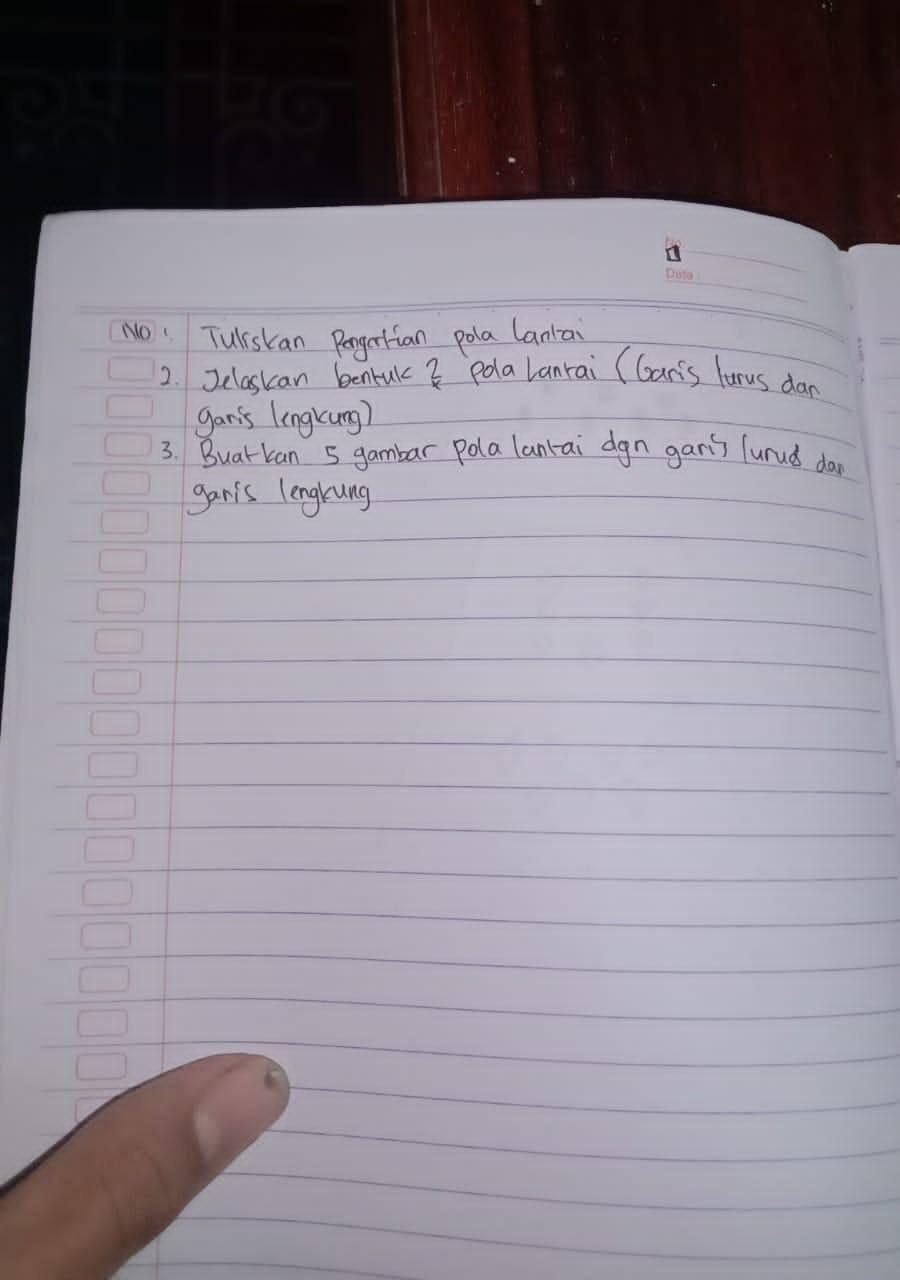 No
Date :
No 1. Tuliskan Pengertian pola lantai
2. Jelaskan bentuk2 pola lantai (Garis lurus dan
garis lengkung)
3. Buatkan 5 gambar pola lantai dgn garis lurus dan
garis lengkung